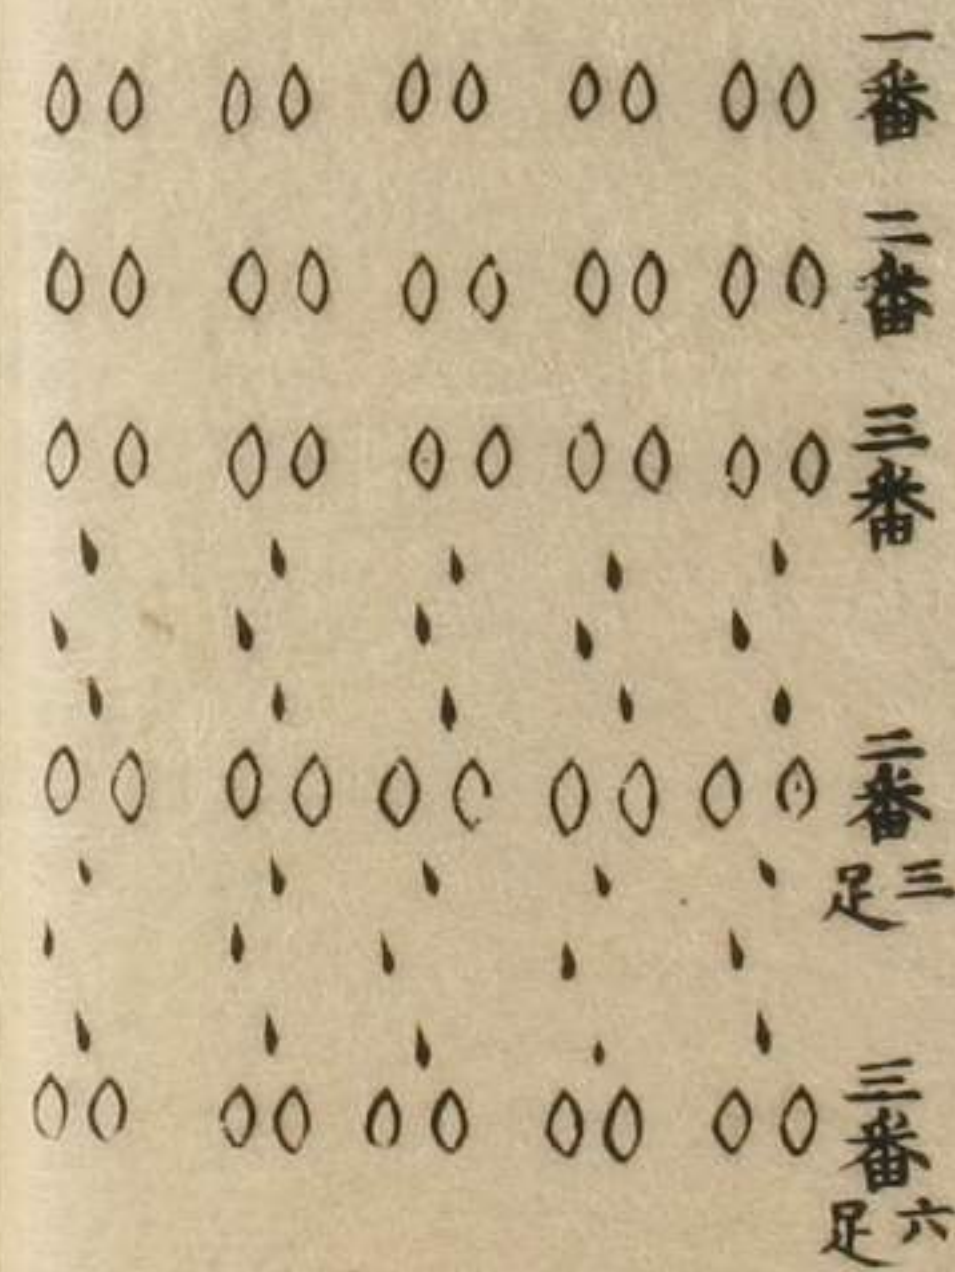 一番
二番
三番
二番
三足
三番
六足